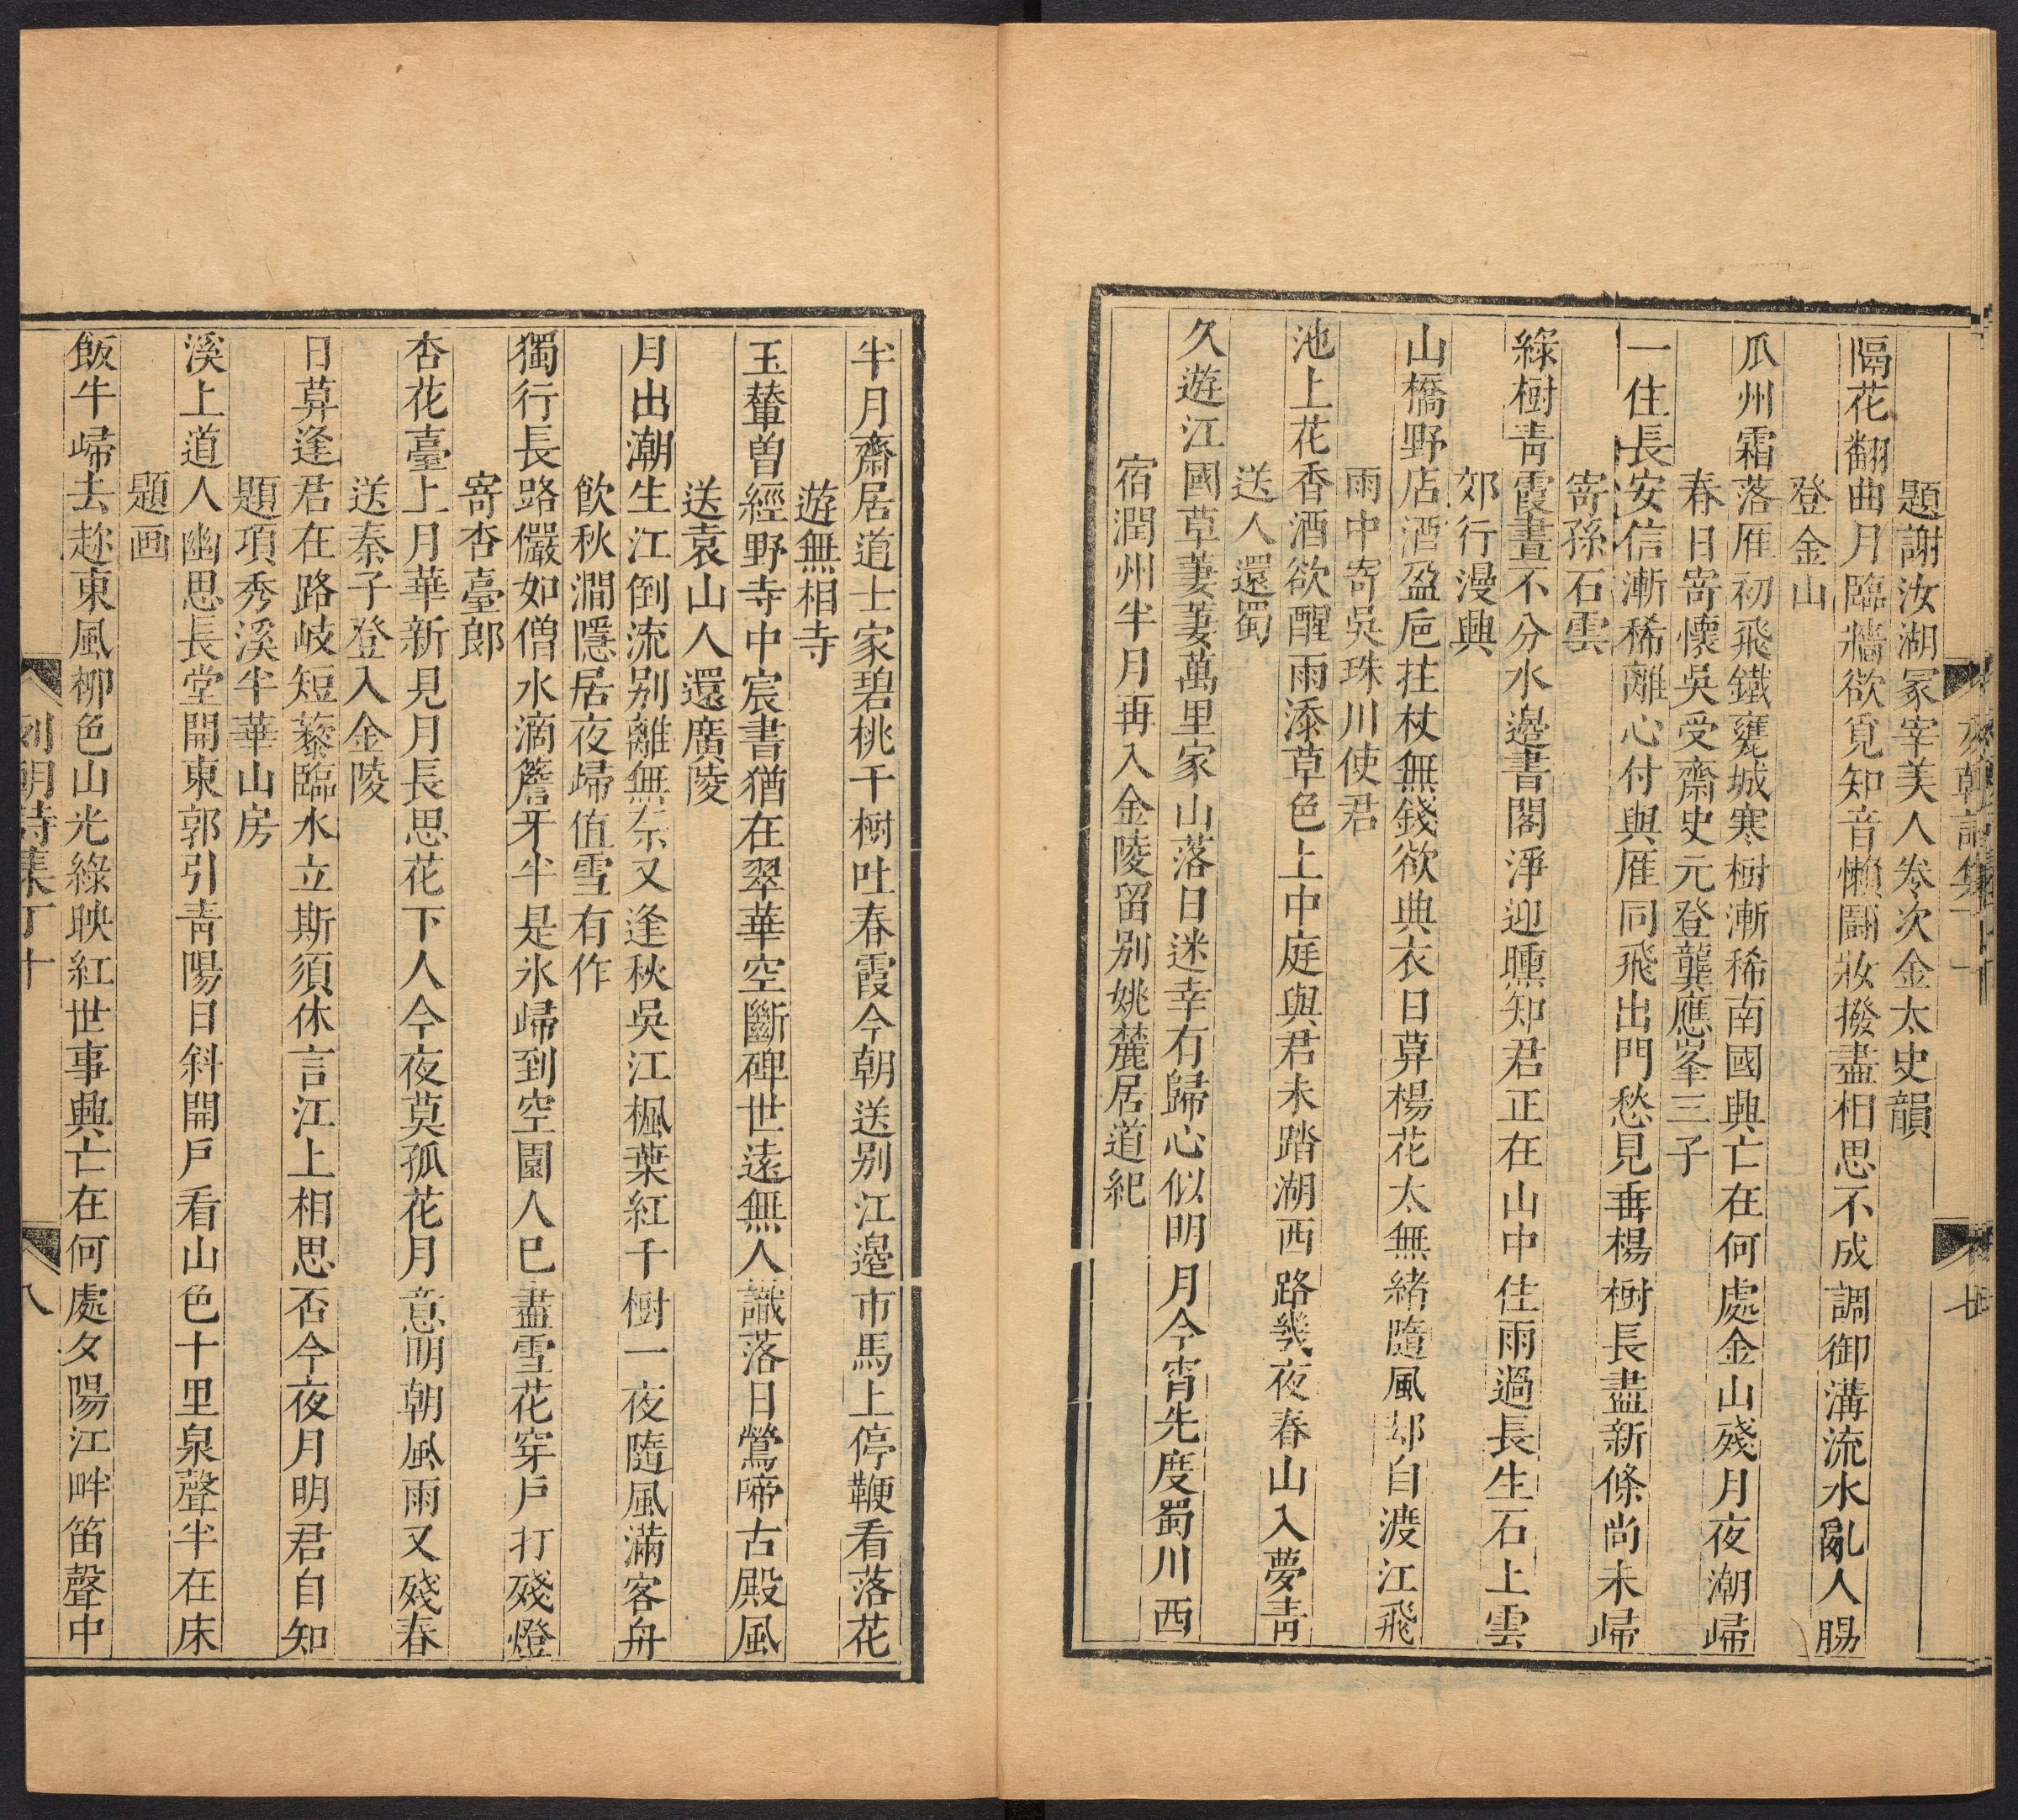 題謝汝湖冢宰美人卷次金太史韻
隔花翻曲月臨牆欲覓知音懶鬪妝撥盡相思不成調御溝流水亂人腸
登金山
瓜州霜落雁初飛鐵甕城寒樹漸稀南國興亡在何處金山殘月夜潮歸
春日寄懷吳受齋史元登龔應峯三子
一住長安信漸稀離心付與雁同飛出門愁見垂楊樹長盡新條尚未歸
寄孫石雲
綠樹青霞晝不分水邊書閣淨迎曛知君正在山中住雨過長生石上雲
郊行漫興
山橋野店酒盈巵拄杖無錢欲典衣日暮楊花太無緒隨風却自渡江飛
雨中寄吳珠川使君
池上花香酒欲醒雨添草色上中庭與君未踏湖西路幾夜春山入夢青
送人還蜀
久遊江國草萋萋萬里家山落日迷幸有歸心似明月今宵先度蜀川西
宿潤州半月再入金陵留别姚麓居道紀
半月齋居道士家碧桃千樹吐春霞今朝送别江邊市馬上停鞭看落花
遊無相寺
玉輦曾經野寺中宸書猶在翠華空斷碑世遠無人識落日鶯啼古殿風
送袁山人還廣陵
月出潮生江倒流别離無奈又逢秋吳江楓葉紅千樹一夜隨風滿客舟
飲秋澗隱居夜歸值雪有作
獨行長路儼如僧水滴簷牙半是氷歸到空園人巳盡雪花穿戶打殘燈
寄杏臺郎
杏花臺上月華新見月長思花下人今夜莫孤花月意明朝風雨又殘春
送秦子登入金陵
日暮逢君在路岐短藜臨水立斯須休言江上相思否今夜月明君自知
題項秀溪半華山房
溪上道人幽思長堂開東郭引青陽日斜開戶看山色十里泉聲半在床
題画
飯牛歸去趂東風柳色山光綠映紅世事興亡在何處夕陽江畔笛聲中
列朝詩集丁十
八